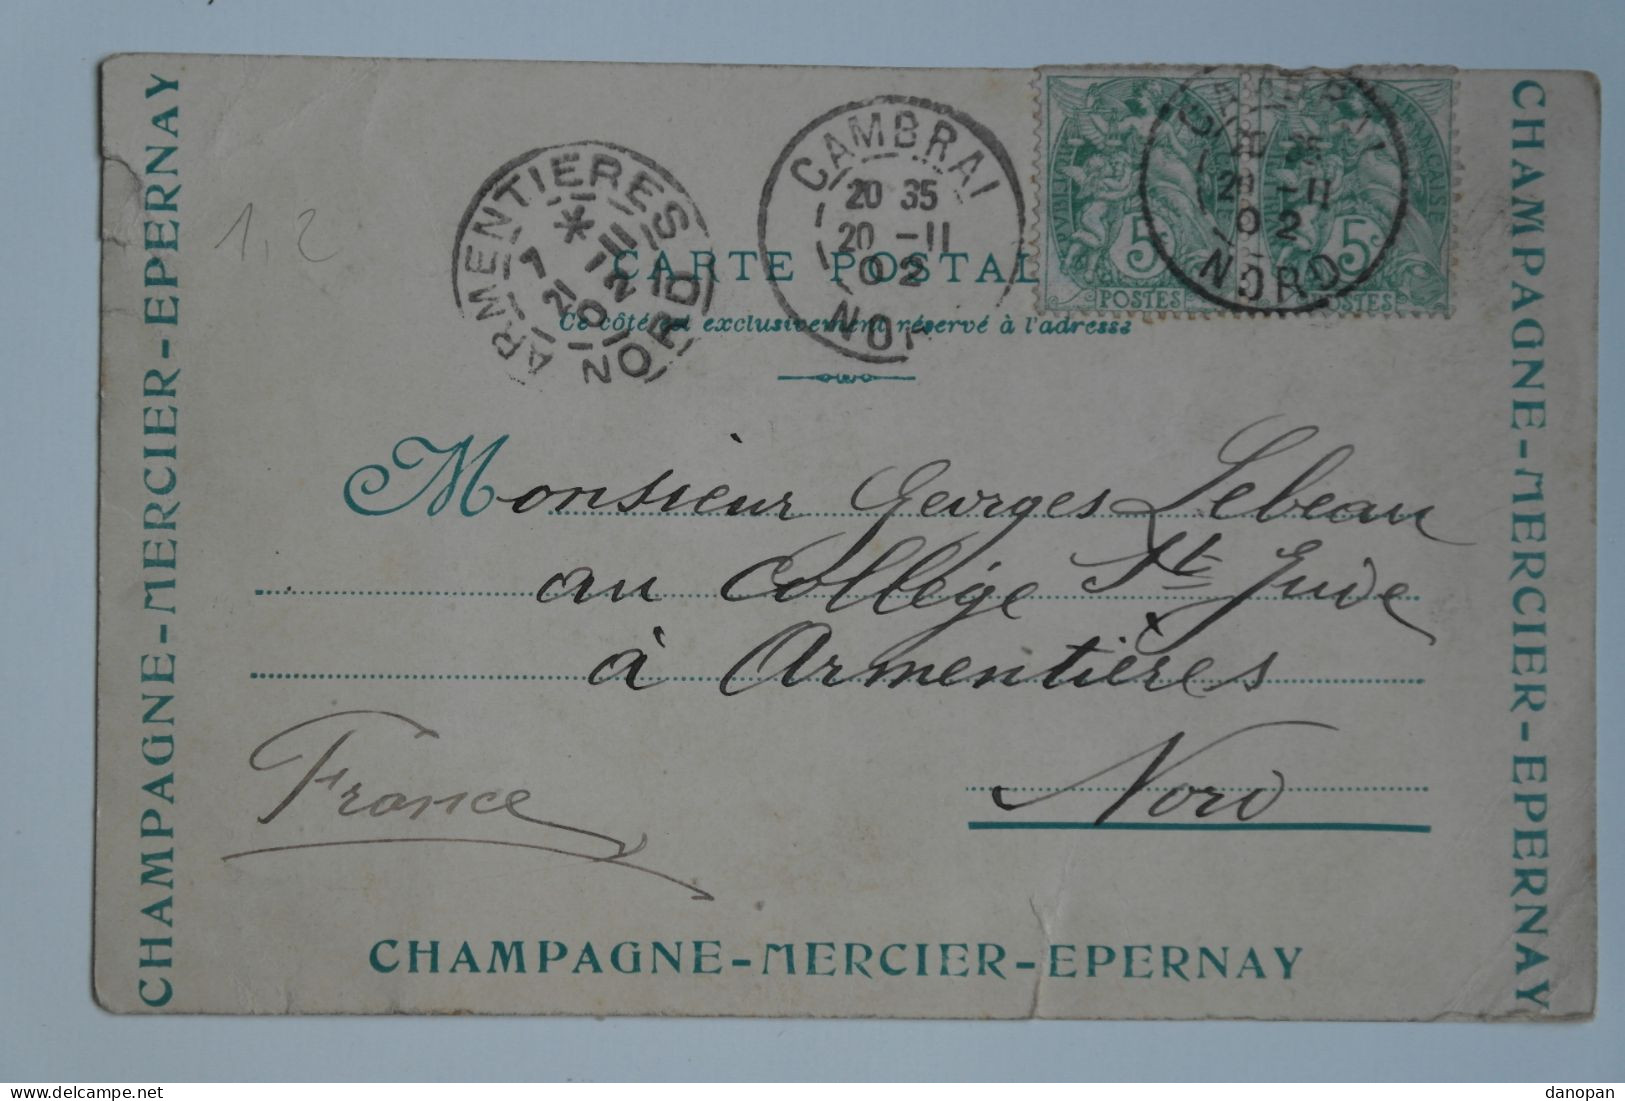 CHAMPAGNE-MERCIER-EPERNAY
ARMENTIERES
7 * 11
21 12
02
NORD
CAMBRAI
20 35
20 -11
02
NOR
CAMBRAI
20 35
20 -11
02
NORD
5c 5c
POSTES POSTES
CARTE POSTAL
Ce côté est exclusivement réservé à l'adresse
1,2
Monsieur Georges Lebeau
au Collège St Jude
à Armentières
Nord
France
CHAMPAGNE-MERCIER-EPERNAY
CHAMPAGNE-MERCIER-EPERNAY
danopan